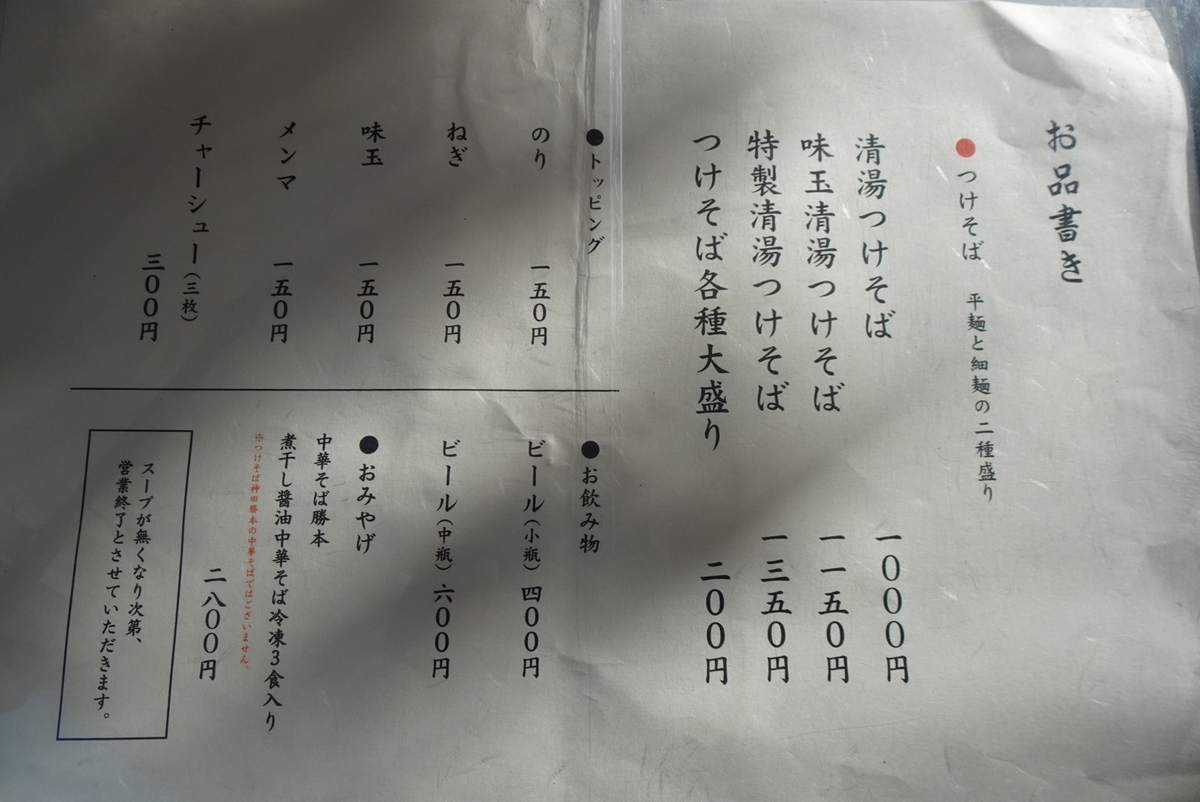 お品書き
●つけそば 平麺と細麺の二種盛り
清湯つけそば 一〇〇〇円
味玉清湯つけそば 一一五〇円
特製清湯つけそば 一三五〇円
つけそば各種大盛り 二〇〇円
●トッピング
のり 一五〇円
ねぎ 一五〇円
味玉 一五〇円
メンマ 一五〇円
チャーシュー(三枚)
三〇〇円
●お飲み物
ビール(小瓶)四〇〇円
ビール(中瓶)六〇〇円
●おみやげ
中華そば勝本
煮干し醤油中華そば冷凍3食入り
※つけそば神田勝本の中華そばではございません。
二八〇〇円
スープが無くなり次第、
営業終了とさせていただきます。